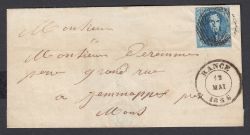 Monsieur
Monsieur Derenne
grand rue
a Jemmappes près
Mons
RANCE
12
MAI